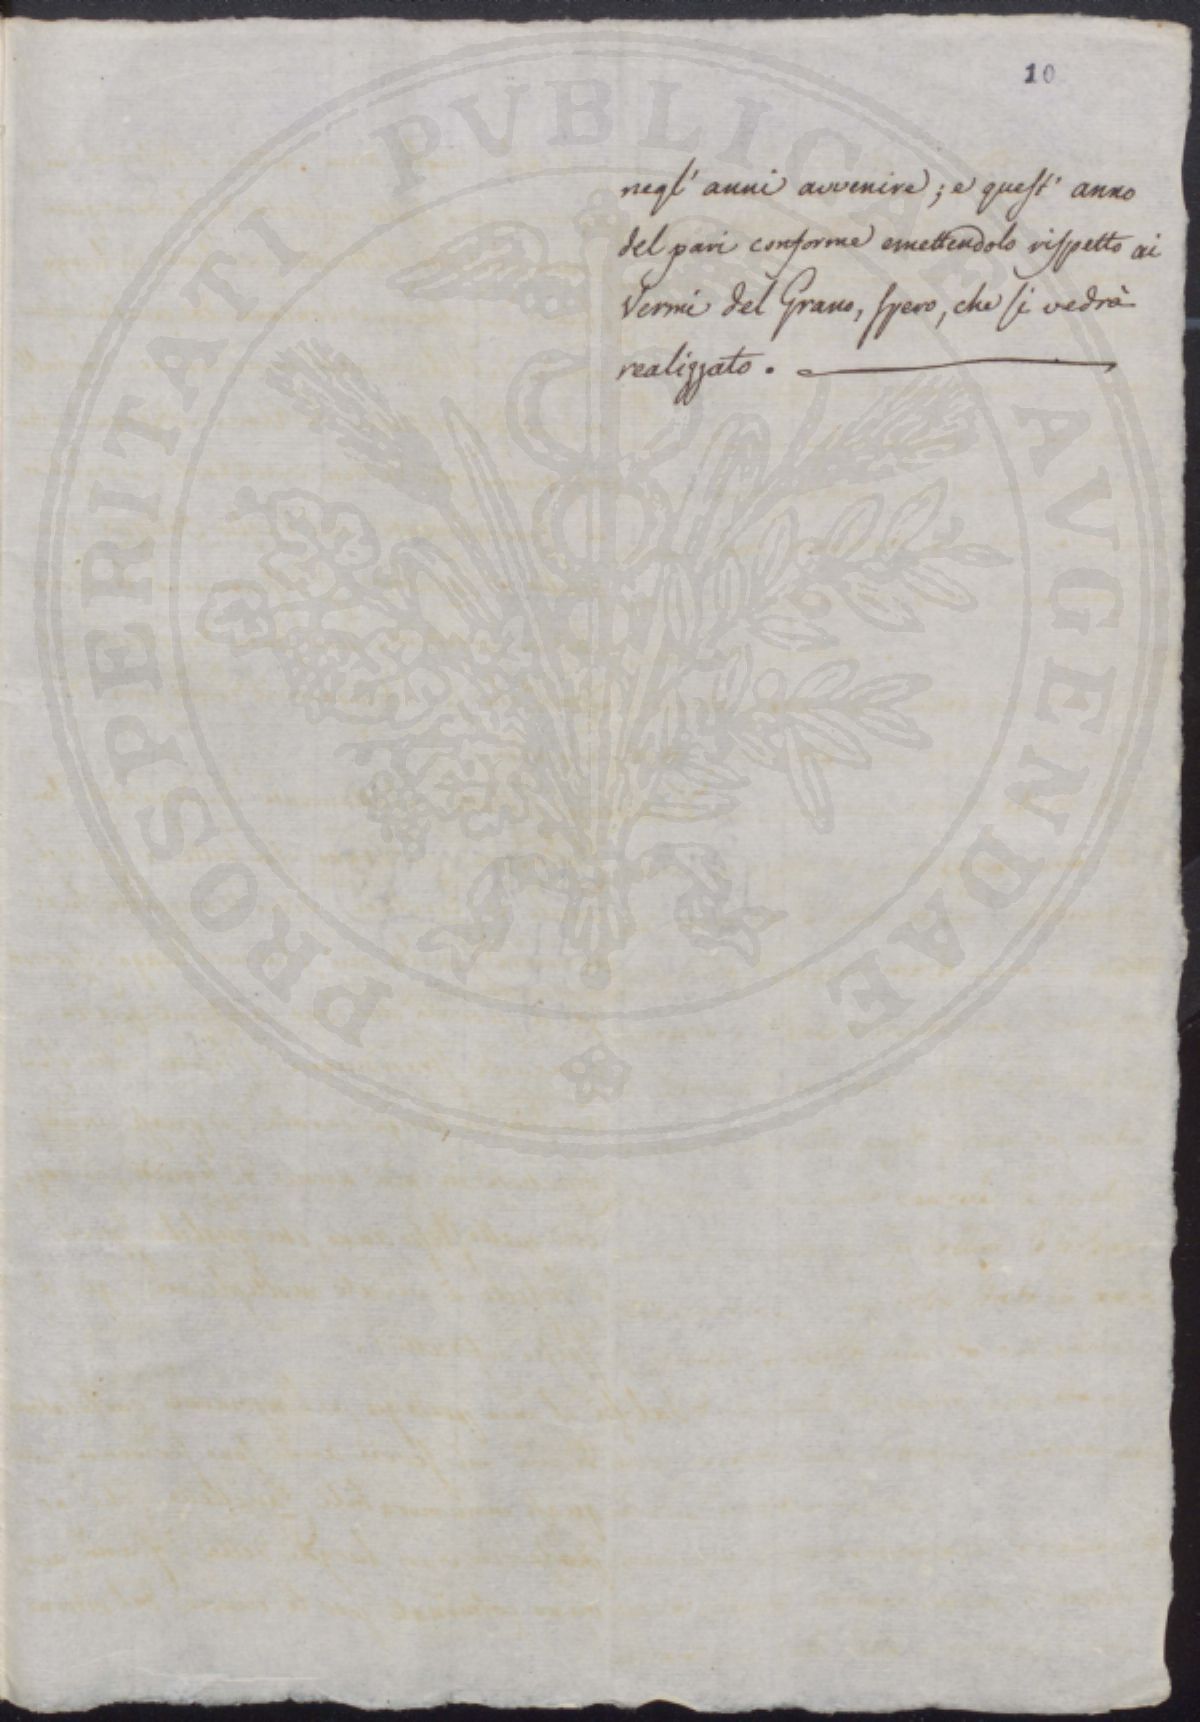 10
negl' anni avvenire; e quest' anno
del pari conforme emettendolo rispetto ai
Vermi del Grano, spero, che si vedrà
realizzato.
PROSPERITATI PUBLICAE AUGENDAE